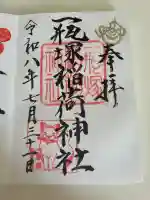 奉拝
瓶塚稲荷神社
令和八年七月三十一日